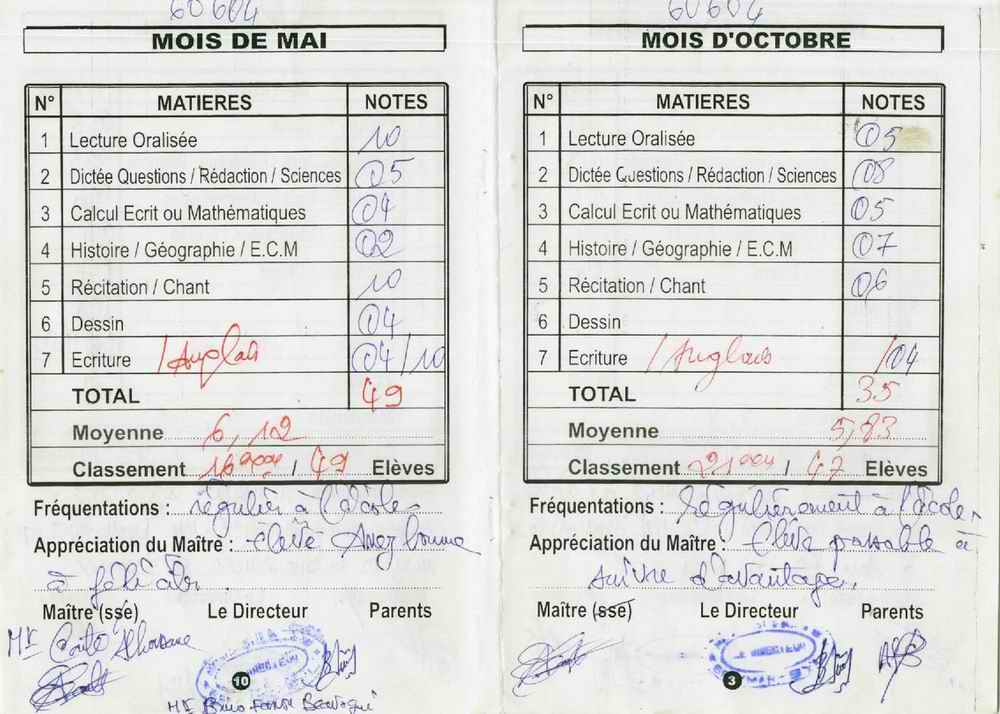 60604
MOIS DE MAI
N° MATIERES NOTES
1 Lecture Oralisée 10
2 Dictée Questions / Rédaction / Sciences 05
3 Calcul Ecrit ou Mathématiques 04
4 Histoire / Géographie / E.C.M 02
5 Récitation / Chant 10
6 Dessin 04
7 Ecriture / Anglais 04/10
TOTAL 49
Moyenne 6,12
Classement 16 / 49 Elèves
Fréquentations : régulier à l'école
Appréciation du Maître : élève Assez bonne
à
Maître (sse) Le Directeur Parents
Mr
LE DIRECTEUR
10
Mr
60604
MOIS D'OCTOBRE
N° MATIERES NOTES
1 Lecture Oralisée 05
2 Dictée Questions / Rédaction / Sciences 08
3 Calcul Ecrit ou Mathématiques 05
4 Histoire / Géographie / E.C.M 07
5 Récitation / Chant 06
6 Dessin
7 Ecriture / Anglais /04
TOTAL 35
Moyenne 5,83
Classement 21 / 47 Elèves
Fréquentations : Régulièrement à l'école
Appréciation du Maître : Elève passable à
suivre d'avantage.
Maître (sse) Le Directeur Parents
LE DIRECTEUR
3